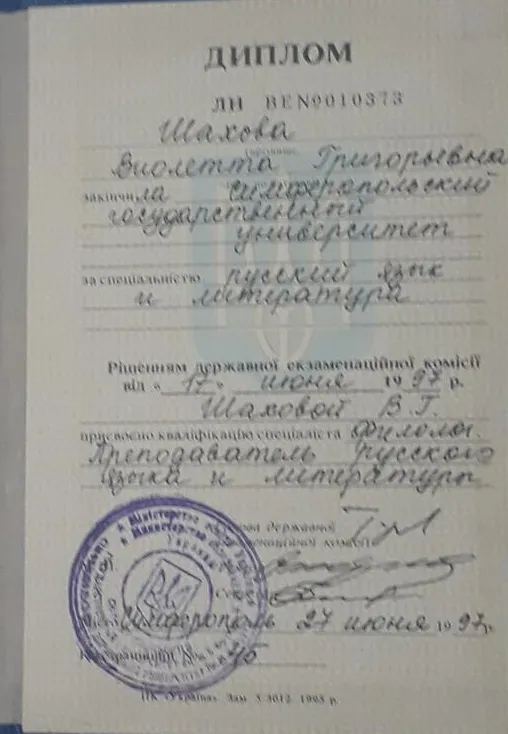 ДИПЛОМ
ЛИ ВЕ№010373
Шахова
Виолетта Григорьевна
закінчила симферопольский
государственный
университет
за спеціальністю русский язык
и литература
Рішенням державної екзаменаційної комісії
від « 17 » июня 1997 р.
Шаховой В.Г.
присвоєно кваліфікацію спеціаліста Филолог.
Преподаватель русского
языка и литературы
Голова державної
екзаменаційної комісії
Симферополь 27 июня 1997р.
Реєстраційний № 45
ПК «Україна» Зам 5-3012 1995 р.
Міністерство
Министерство
України